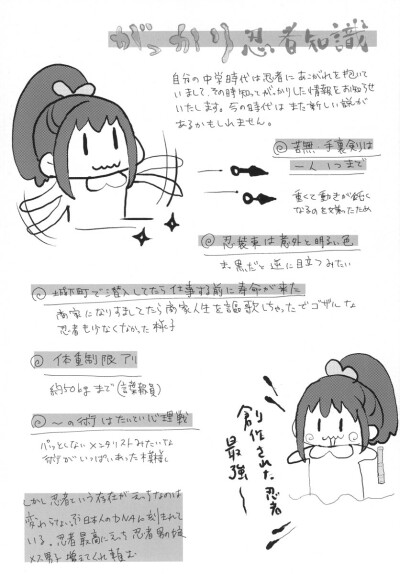 がっかり忍者知識
自分の中学時代は忍者にあこがれを抱いて
いまして、その時知ってがっかりした情報をお知らせ
いたします。今の時代は また新しい説が
あるかもしれません。
◎苦無・手裏剣は
一人1つまで
重くて動きが鈍く
なるのを嫌ったため
◎忍装束は意外と明るい色
ま、黒だと逆に目立つみたい
◎城下町で潜入してたら仕事する前に寿命が来た
商家になりすましてたら商家人生を謳歌しちゃったでゴザルな
忍者も少なくなかった様子
◎体重制限アリ
約50kgまで
◎〜の術はたいてい心理戦
パッとしないメンタリストみたいな
術がいっぱいあった模様
創作された忍者
最強〜
しかし忍者という存在がえっちなのは
変わらない。日本人のDNAに刻まれて
いる。忍者最高にえっち 忍者
メス男子 増えてくれ頼む